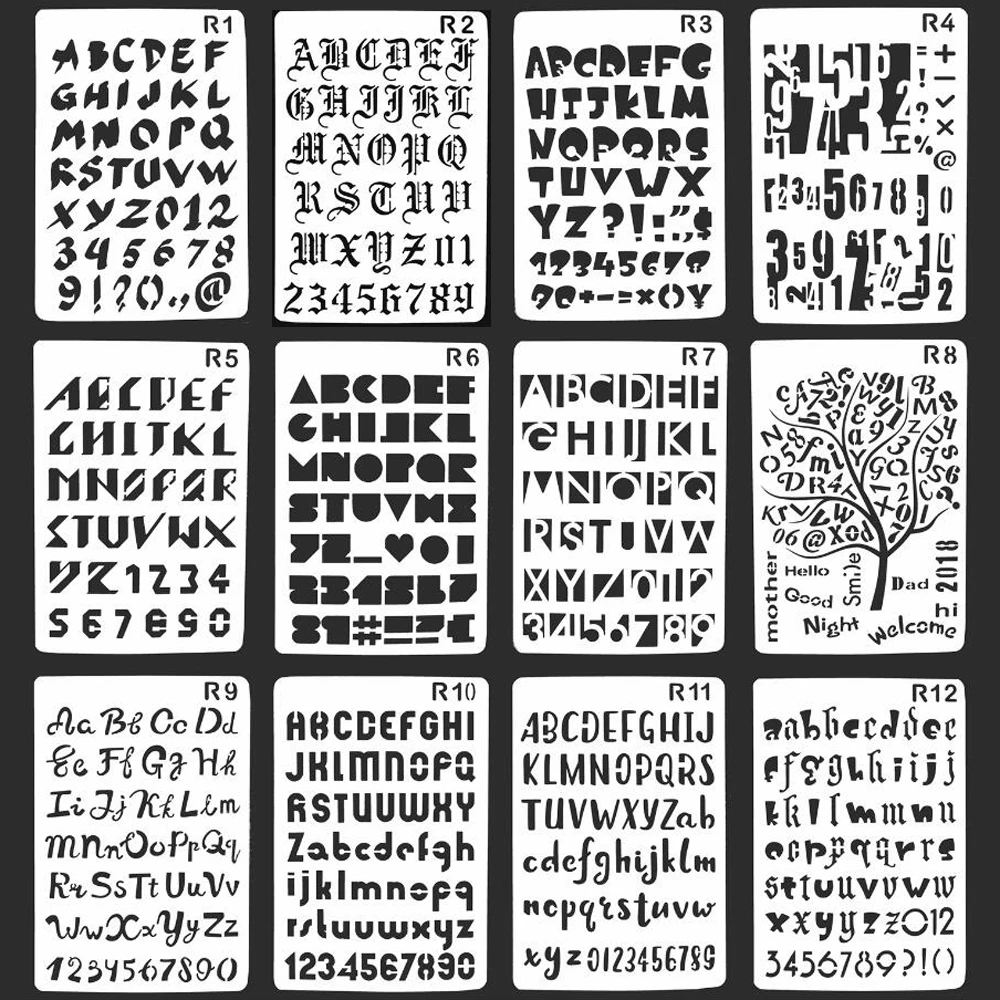 R1
ABCDEF
GHIJKL
MNOPQ
RSTUVW
XYZ012
345678
9!?().,@
R2
ABCDEF
GHIJKL
MNOPQ
RSTUV
WXYZ01
23456789
R3
ABCDEFG
HIJKLM
NOPQRS
TUVWX
YZ?!:",$
12345678
90+-=×()¥
R4
1234567890
R5
ABCDEF
GHIJKL
MNOPQR
STUVWX
YZ1234
567890
R6
ABCDEF
GHIJKL
MNOPQR
STUVWX
YZ_♥●1
234567
89#
R7
ABCDEF
GHIJKL
MNOPQ
RSTUVW
XYZ012
3456789
R8
mother
Hello
Good
Smile
Night
Dad
2018
hi
Welcome
R9
Aa Bb Cc Dd
Ee Ff Gg Hh
Ii Jj Kk L lm
MNnOoPpQq
Rr Ss Tt Uu Vv
Ww Xx Yy Zz
1234567890
R10
ABCDEFGHI
JKLMNOPQ
RSTUVWXY
Zabcdefgh
ijklmnopq
rstuvwxyz
1234567890
R11
ABCDEFGHIJ
KLMNOPQRS
TUVWXYZab
cdefghijklm
nopqrstuvw
xyz0123456789
R12
aabbccddee
ffgghhiijj
kkllmmnn
ooppqqrrs
sttuuvvww
xxyyzz012
3456789?!()